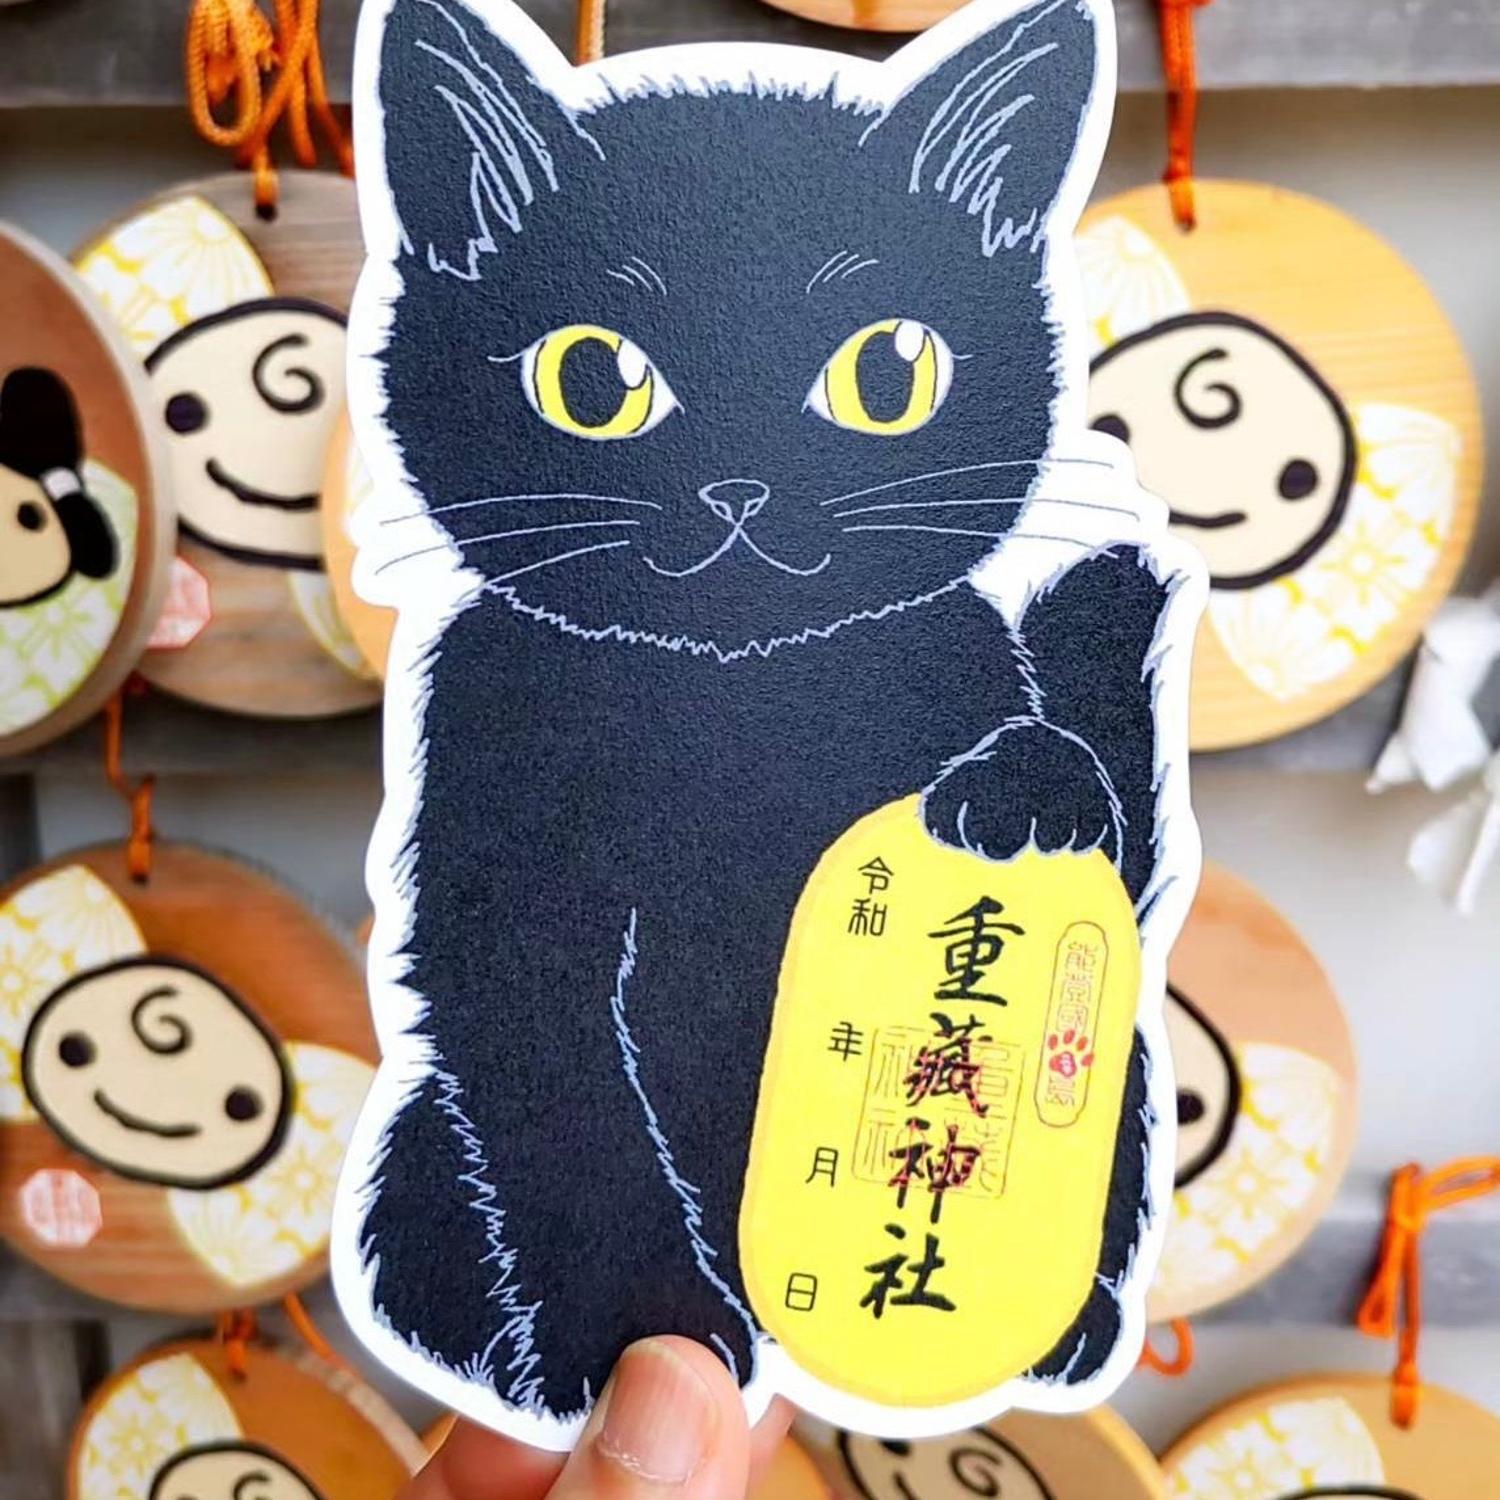 能登國
重蔵神社
令和
年
月
日